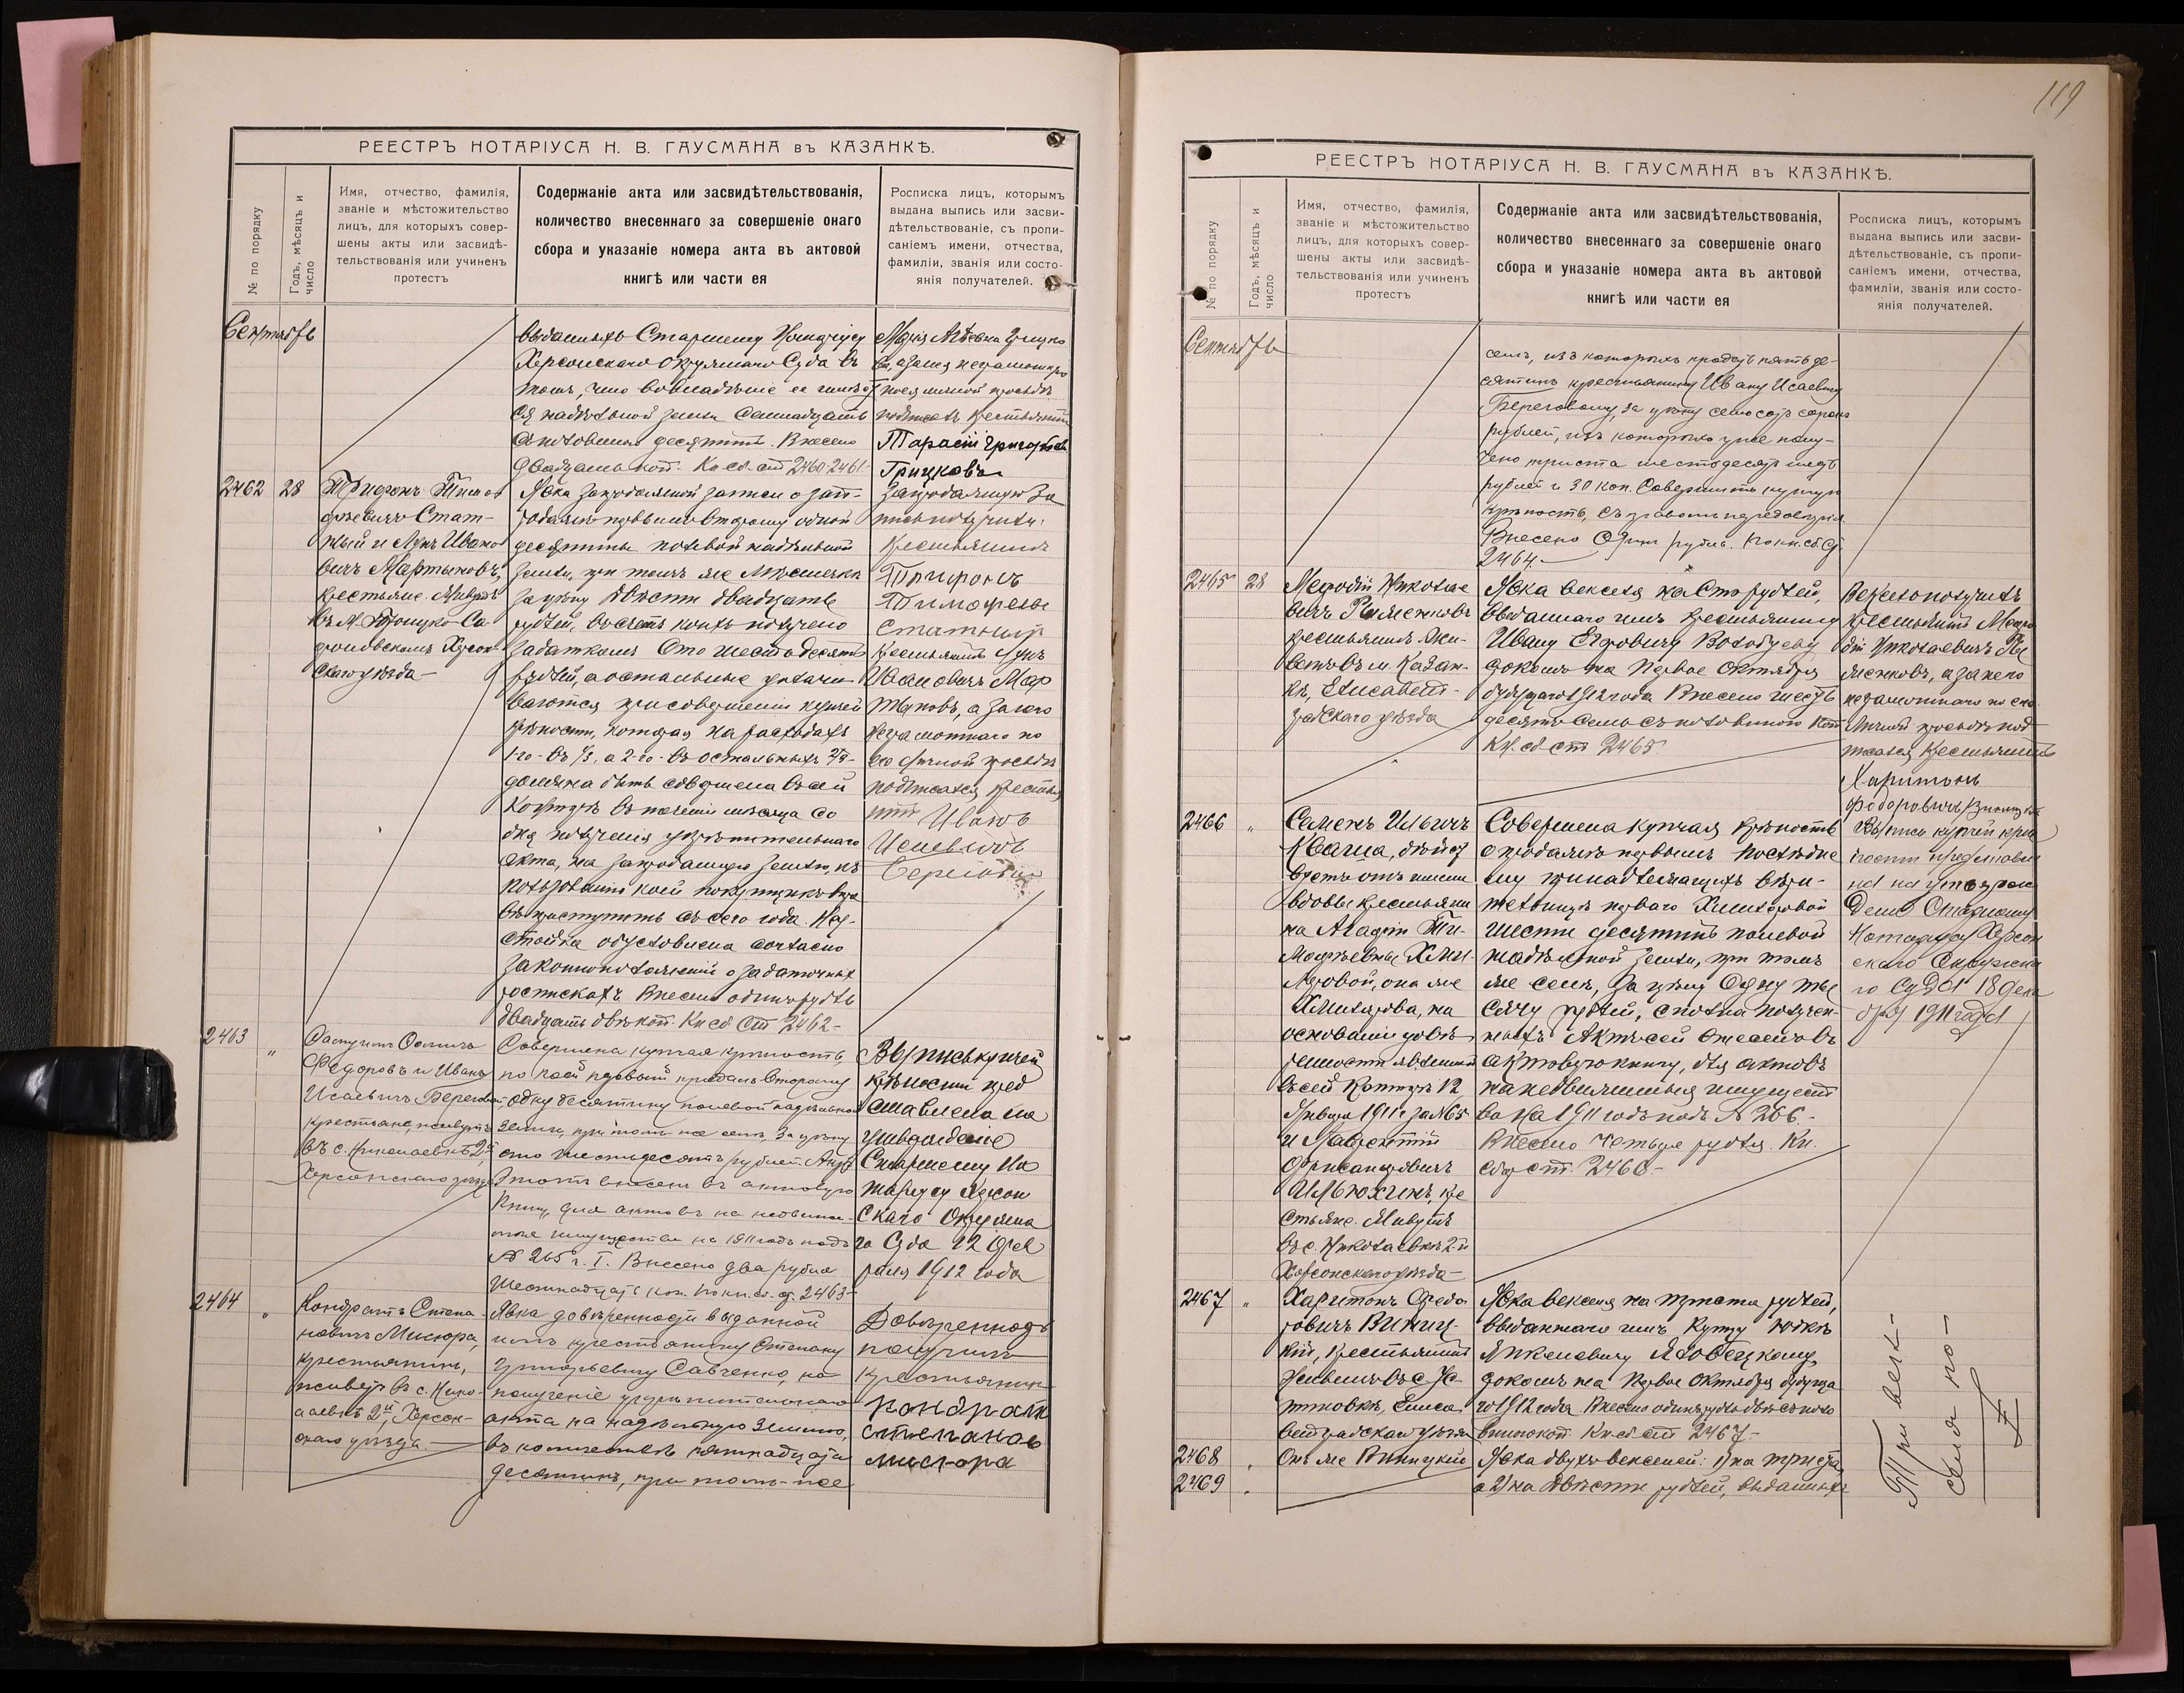 119
РЕЕСТРЪ НОТАРІУСА Н. В. ГАУСМАНА въ КАЗАНКѢ.
№ по порядку
Годъ, мѣсяцъ и
число
Имя, отчество, фамилія,
званіе и мѣстожительство
лицъ, для которыхъ совер-
шены акты или засвидѣ-
тельствованія или учиненъ
протестъ
Содержаніе акта или засвидѣтельствованія,
количество внесеннаго за совершеніе онаго
сбора и указаніе номера акта въ актовой
книгѣ или части ея
Росписка лицъ, которымъ
выдана выпись или засви-
дѣтельствованіе, съ пропи-
саніемъ имени, отчества,
фамиліи, званія или состо-
янія получателей.
Сентябрь
выданныхъ Старшему Нотаріусу
Херсонскаго Окружнаго Суда въ
томъ, что во владѣніе ея имѣет
ся надѣльной земли Семнадцать
съ половиной десятинъ. Внесено
двадцать коп. Кн. сб. ст. 2460-2461
Тарасій Григорьев
Грицковъ
2462 28
Трифонъ Тимоѳ
ѳеевичъ Стат-
ный и Лукъ Ивано
вичъ Мартыновъ,
крестьяне. Живутъ
въ м. Троицко-Са
фоновскомъ Херсон
скаго уѣзда
Явка запродажной записи о зап-
родажѣ первымъ второму одной
десятины полевой надѣльной
земли, при томъ же мѣстечкѣ
за цѣну Двѣсти двадцать
рублей, въ счетъ коихъ получено
задаткомъ Сто шестьдесятъ
рублей, а остальные уплачи
ваются при совершеніи купчей
крѣпости, которая на расходахъ
1-го въ 1/3, а 2-го въ остальныхъ 2/3-
должна быть совершена въ сей
Конторѣ въ теченіи мѣсяца со
дня полученія укрѣпительнаго
акта, на запроданную землю, къ
пользованію коей покупщикъ впра
вѣ приступить съ сего года. Неу-
стойка обусловлена согласно
законоположеній о задаточныхъ
роспискахъ Внесено одинъ рубль
двадцать двѣ коп. Кн. сб. ст. 2462-
Запродажную за
пись получили:
Крестьянинъ
Трифонъ
Тимофеевъ
Статный
Крестьянинъ Лукъ
Ивановичъ Мар
тыновъ, а за него
неграмотнаго по
его личной просьбѣ
подписался, крестья
нинъ Иванъ
2463 "
Федоровъ и Иванъ
Исаевичъ Береговой,
крестьяне, живутъ
въ с. Николаевкѣ 2й,
Херсонскаго уѣзда
Совершена купчая крѣпость,
по коей первый продалъ второму
одну десятину полевой надѣльной
земли, при томъ же селѣ, за цѣну
сто шестьдесятъ рублей. Актъ
этотъ внесенъ въ актовую
книгу для актовъ на недвижи-
мыя имущества на 1911 годъ подъ
№ 265 ч. I. Внесено два рубля
шестнадцать коп. по кн. сб. ст. 2463-
Выпись купчей
крѣпости пред
ставлена на
утвержденіе
Старшему Но
таріусу Херсон
скаго Окружна
го Суда 12 Фев
раля 1912 года
2464 "
Кондратъ Степа
новичъ Мисюра,
крестьянинъ,
живетъ въ с. Нико-
лаевкѣ 2й, Херсон-
скаго уѣзда.
Явка довѣренности выданной
имъ крестьянину Степану
Григорьевичу Савченко, на
полученіе укрѣпительнаго
акта на надѣльную землю,
въ количествѣ пятнадцати
десятинъ, при томъ-же
Довѣренность
получилъ
крестьянин
Кондрат
степанов
мисюра
РЕЕСТРЪ НОТАРІУСА Н. В. ГАУСМАНА въ КАЗАНКѢ.
№ по порядку
Годъ, мѣсяцъ и
число
Имя, отчество, фамилія,
званіе и мѣстожительство
лицъ, для которыхъ совер-
шены акты или засвидѣ-
тельствованія или учиненъ
протестъ
Содержаніе акта или засвидѣтельствованія,
количество внесеннаго за совершеніе онаго
сбора и указаніе номера акта въ актовой
книгѣ или части ея
Росписка лицъ, которымъ
выдана выпись или засви-
дѣтельствованіе, съ пропи-
саніемъ имени, отчества,
фамиліи, званія или состо-
янія получателей.
Сентябрь
селѣ, изъ которыхъ продать пять де-
сятинъ крестьянину Ивану Исаевичу
Береговому, за цѣну семьсотъ сорокъ
рублей, изъ которыхъ уже полу-
чено триста шестьдесятъ шесть
рублей и 30 коп. Совершить купчую
крѣпость, съ правомъ передовѣрія.
Внесено Одинъ рубль. По кн. сб. ст.
2464.
2465 28
Мефодій Николае
вичъ
крестьянинъ. Жи-
ветъ въ м. Казан-
кѣ, Елисавет-
градскаго уѣзда
Явка векселя на Сто рублей,
выданнаго имъ Крестьянину
Ивану Егоровичу Володуеву
срокомъ на Первое Октября
будущаго 1912 года Внесено шесть
десять семь съ половиною коп.
Кн. сб. ст. 2465
Вексель получилъ
Крестьянинъ Мефо
дій Николаевичъ
а за него
неграмотнаго по его
личной просьбѣ под
писался Крестьянинъ
Харитонъ
Федоровичъ Виницкій
2466 "
Семенъ Ильичъ
Квача, дѣйст
вуетъ отъ имени
вдовы крестьяни
на Агафіи Ти-
моѳеевны Хми-
лѣровой, она же
на
основаніи довѣ-
ренности явленной
въ сей Конторѣ 12
Января 1911 г за № 65
и Лаврентій
кре
стьяне. Живутъ
въ с. Николаевкѣ 2-й
Херсонскаго уѣзда
Совершена купчая крѣпость
о продажѣ первымъ послѣдне
му принадлежащихъ вѣри-
тельницѣ перваго
шести десятинъ полевой
надѣльной земли, при томъ
же селѣ, за цѣну Одну ты
сячу рублей, сполна получен-
ныхъ Актъ сей внесенъ въ
актовую книгу, для актовъ
на недвижимыя имущест
ва на 1911 годъ подъ № 266.
Внесено четыре рубля. Кн.
сбор. ст. 2466-
Выпись купчей крѣ
пости представле
на на утверж
деніе Старшему
Нотаріусу Херсон
скаго Окружна
го Суда 18 дека
бря 1911 года
2467 "
Харитонъ Федо
ровичъ Виниц-
кій, Крестьянинъ
Явка векселя на триста рублей,
выданнаго имъ Купцу
срокомъ на Первое Октября будуща
го 1912 года Внесено одинъ рубль двѣ съ поло
виною коп. Кн. сб. ст. 2467-
2468 "
2469 "
Онъ же Виницкій
Явка двухъ векселей: 1) на триста,
а 2) на двѣсти рублей, выданныхъ
Три век-
селя по-